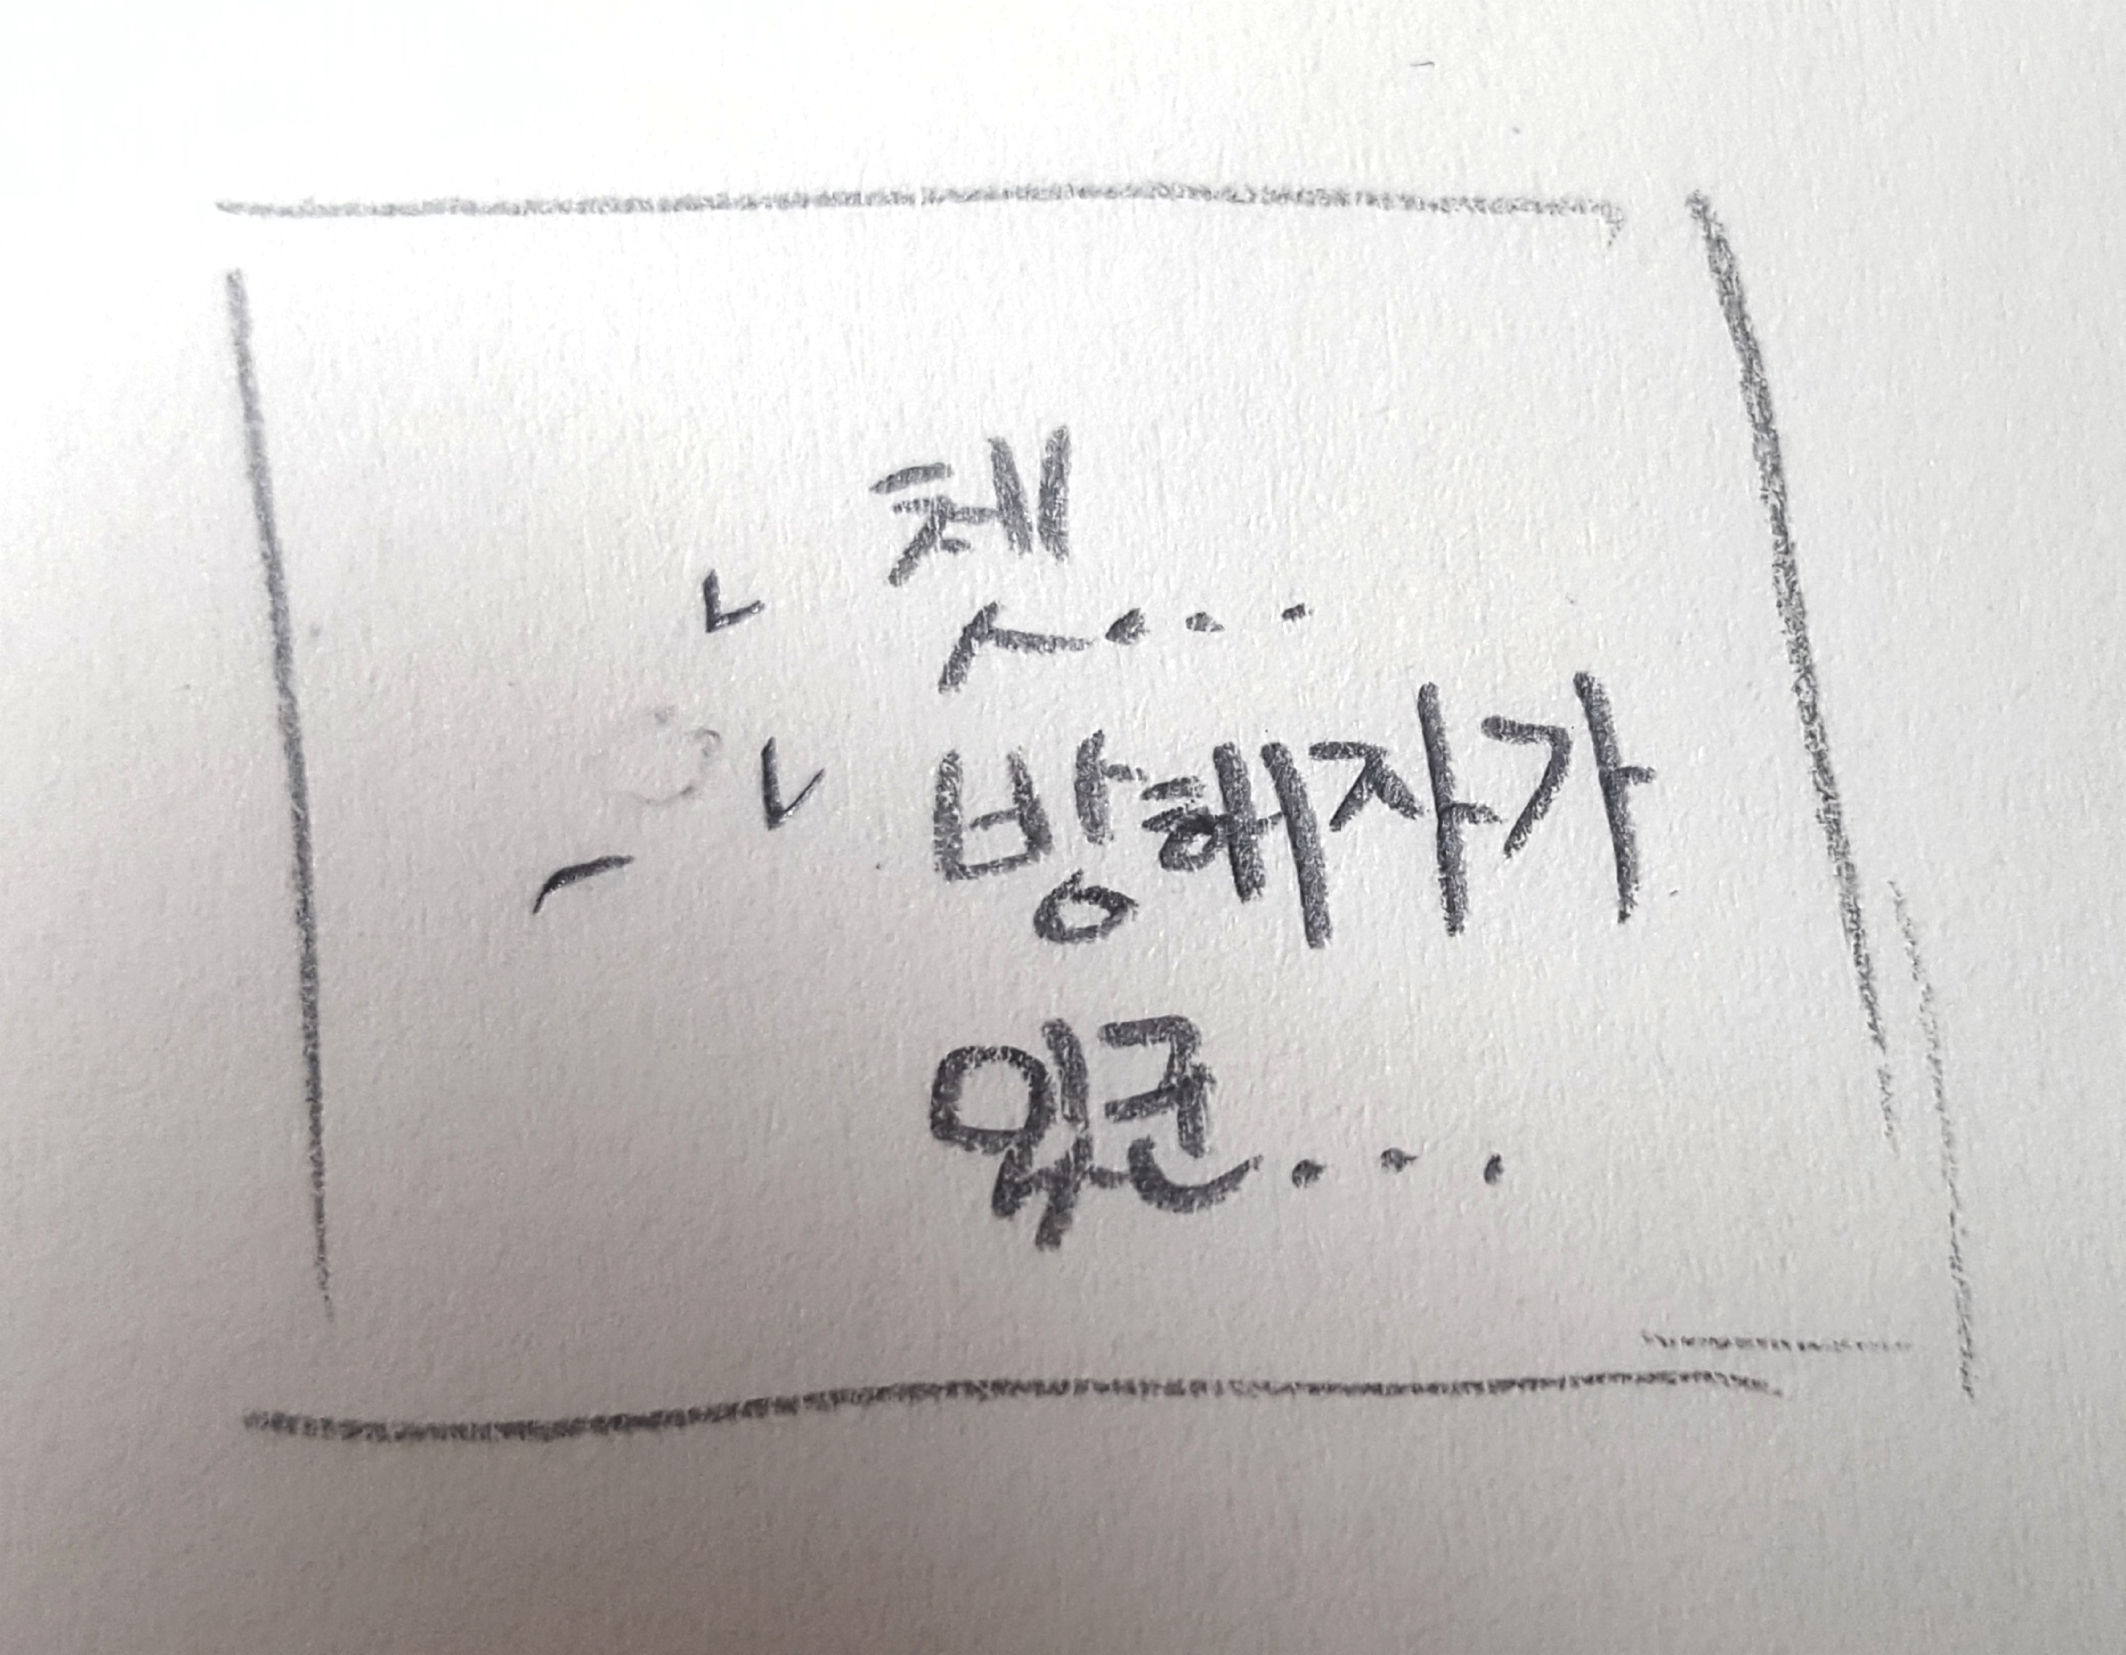 쳇...
방해자가
있군...